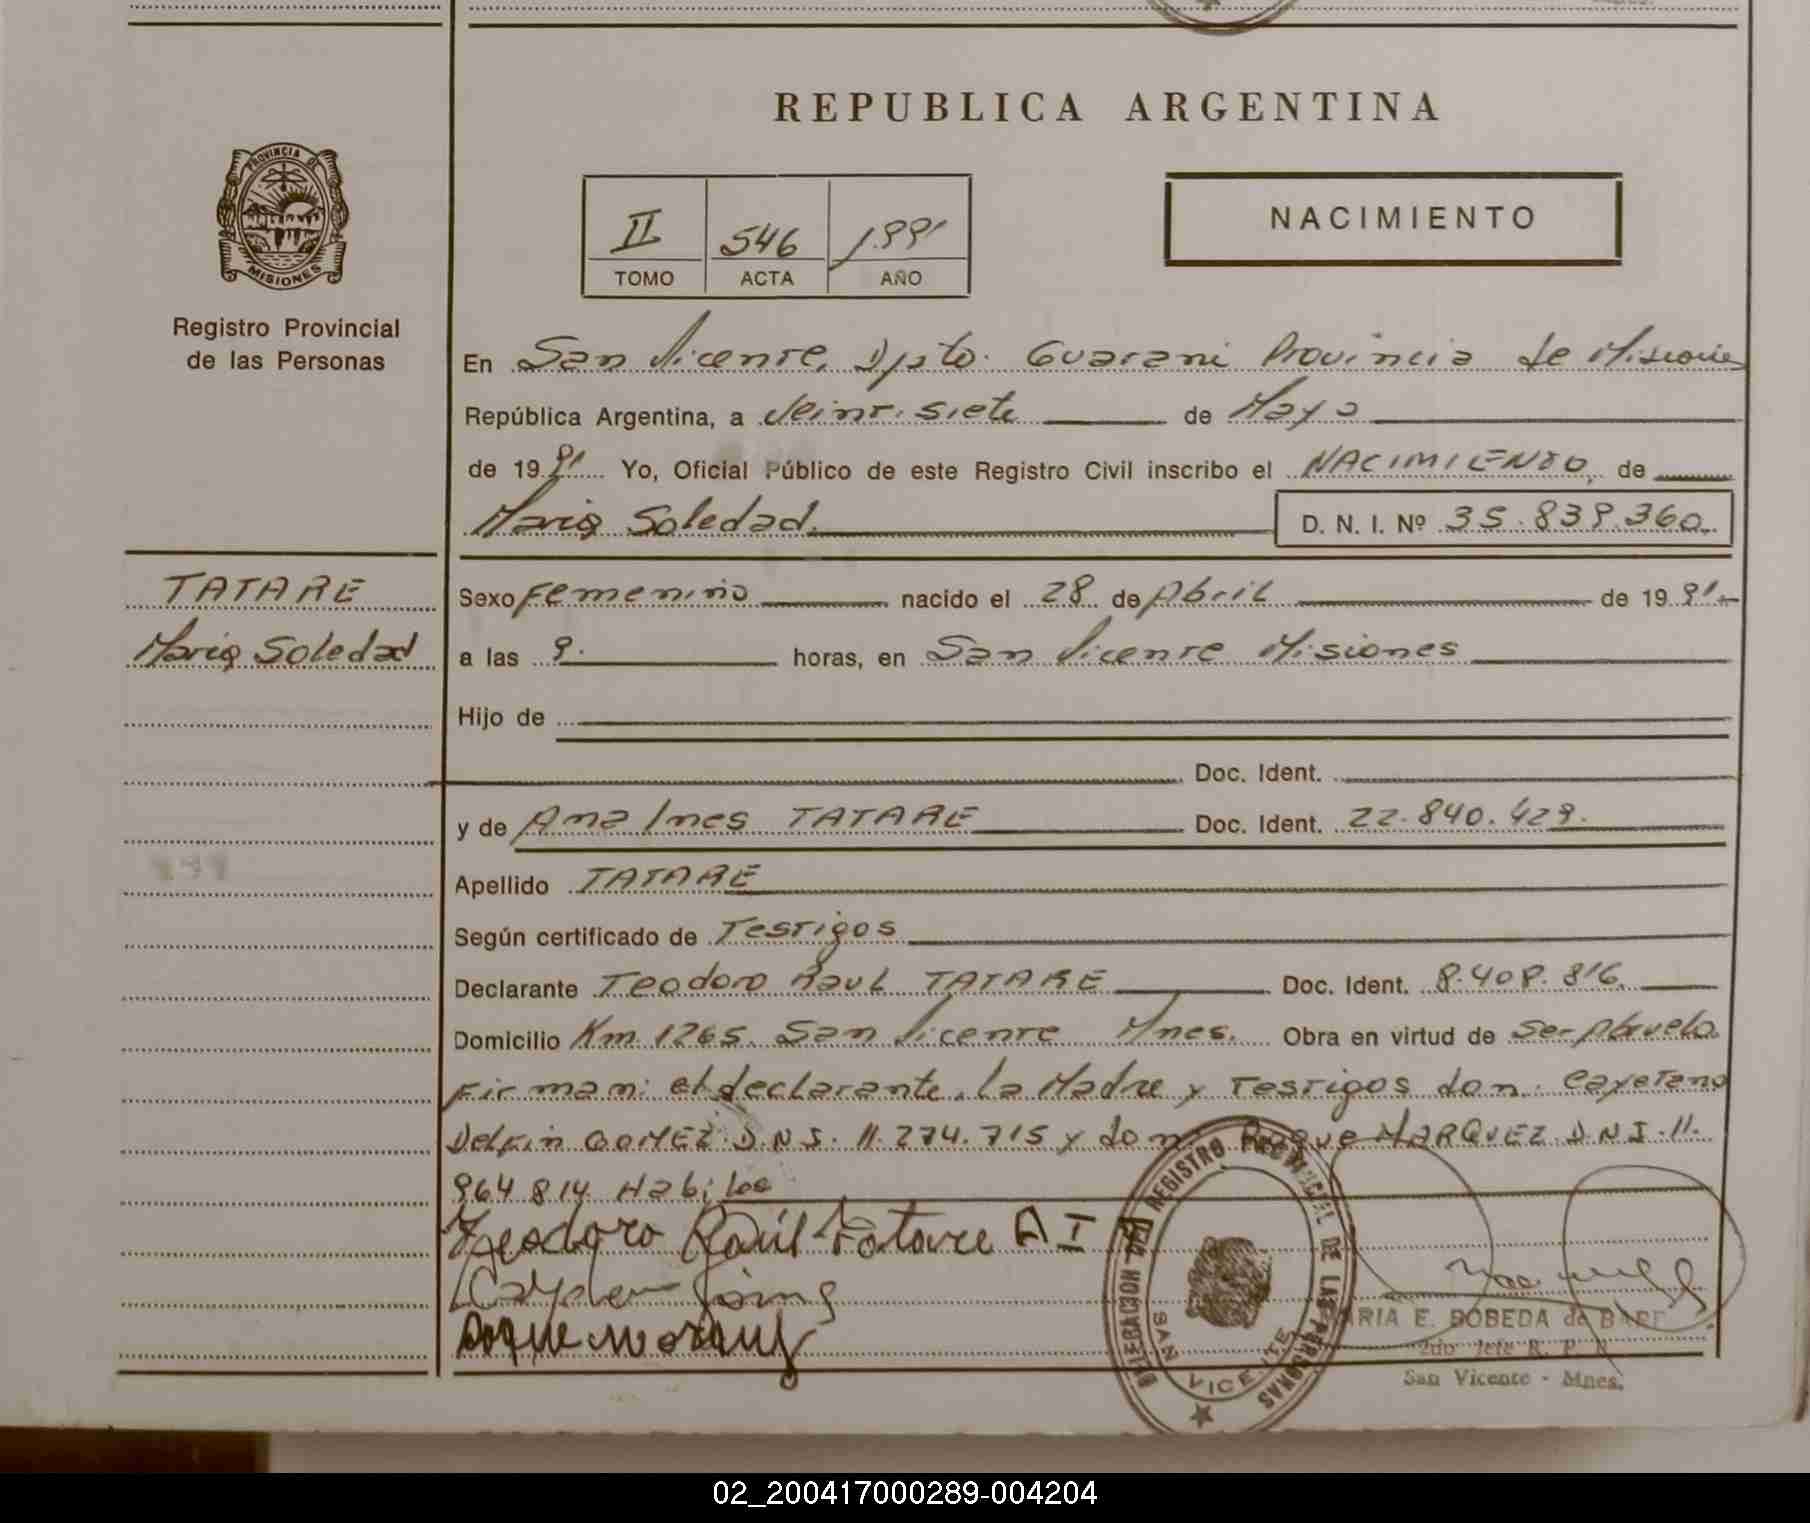 REPUBLICA ARGENTINA
PROVINCIA DE
MISIONES
Registro Provincial
de las Personas
II 546 1.991
TOMO ACTA AÑO
NACIMIENTO
En San Vicente, Dpto. Guarani Provincia de Misiones
República Argentina, a Veint. siete de Mayo
de 1991 Yo, Oficial Público de este Registro Civil inscribo el NACIMIENTO, de
Maria Soledad. D. N. I. Nº 35.839.360
TATARE
Maria Soledad
Sexo Femenino nacido el 28 de Abril de 1991.-
a las 9. horas, en San Vicente Misiones
Hijo de
Doc. Ident.
y de Ana Ines TATARE Doc. Ident. 22.840.429.
Apellido TATARE
Según certificado de Testigos
Declarante Teodoro Raul TATARE Doc. Ident. 8.408.816.
Domicilio Km. 1265. San Vicente Mnes. Obra en virtud de Ser Abuelo.
Firman: el declarante, la Madre y Testigos don: Cayetano
Delfin GOMEZ D.N.I. 11.274.715 y don: Roque MARQUEZ D.N.I. 11.
964 814 Habiles
Teodoro Raúl Tatare A I
DELEGACION DEL REGISTRO PROVINCIAL DE LAS PERSONAS
SAN VICENTE
ARIA E. BOBEDA de
2do Jefe R. P. P.
San Vicente - Mnes.
02_200417000289-004204